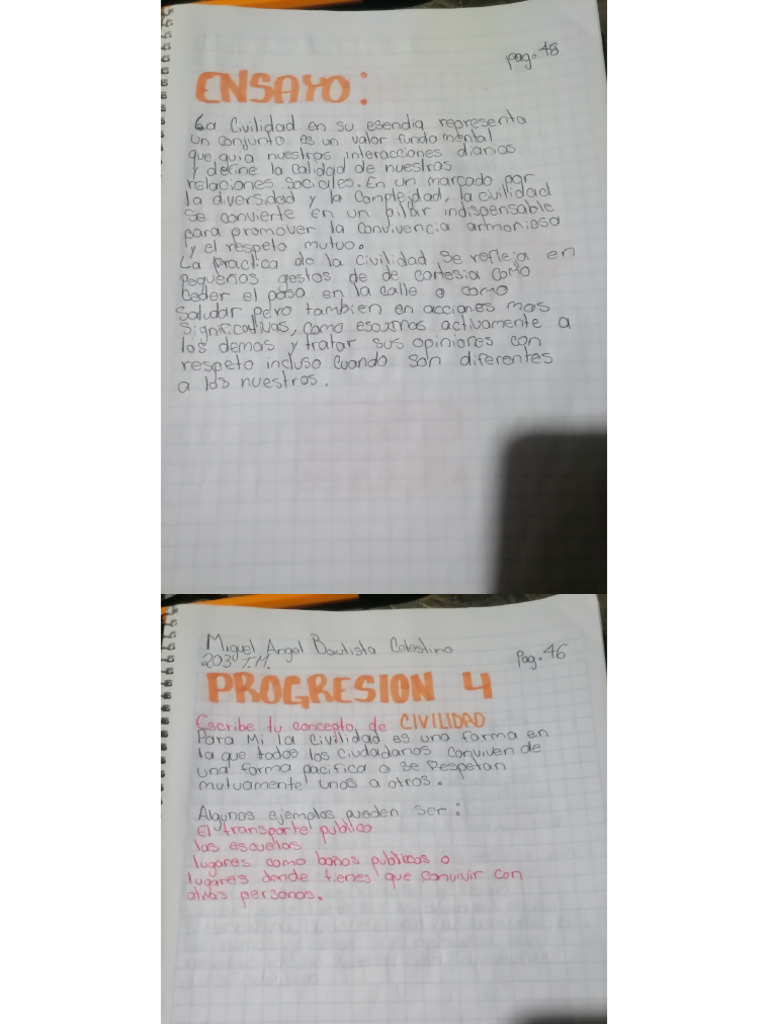 pag. 48
ENSAYO:
La Civilidad en su esendia representa
un conjunto es un valor fundamental
que guia nuestras interacciones diarias
y define la calidad de nuestras
relaciones sociales. En un marcado por
la diversidad y la Conplejidad, la civilidad
se convierte en un pilar indispensable
para promover la Convivencia armoniosa
y el respeto mutuo.
La practica de la Civilidad se refleja en
pequeños gestos de de cortesia como
ceder el paso en la calle o como
saludar pero tambien en acciones mas
significativas, como activamente a
los demas y tratar sus opiniones con
respeto incluso cuando son diferentes
a las nuestros.
Miguel Angel Bautista Celestino
203 T.M.
Pag. 46
PROGRESION 4
Escribe tu concepto de CIVILIDAD
Para Mi la Civilidad es una forma en
la que todos los ciudadanos conviven de
una forma pacifica o se Respetan
mutuamente unos a otros.
Algunos ejemplos pueden ser:
El transporte publico
las escuelas
lugares como baños publicos o
lugares donde tienes que convivir con
otras personas.